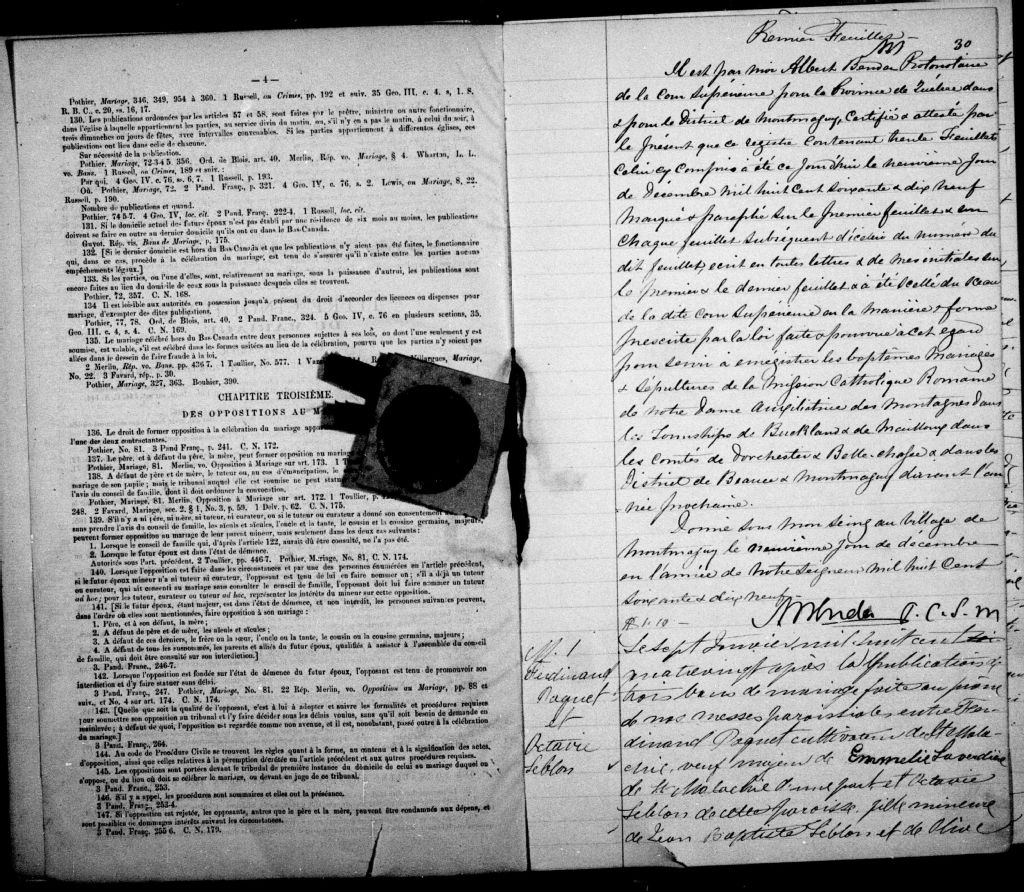 — 4 —
Pothier, Mariage, 346, 349, 954 à 360. 1 Russell, on Crimes, pp. 192 et suiv. 35 Geo. III, c. 4, s. 1. 8.
R. B. C., c. 20, ss. 16, 17.
130. Les publications ordonnées par les articles 57 et 58, sont faites par le prêtre, ministre ou autre fonctionnaire,
dans l'église à laquelle appartiennent les parties, au service divin du matin, ou, s'il n'y en a pas le matin, à celui du soir, à
trois dimanches ou jours de fêtes, avec intervalles convenables. Si les parties appartiennent à différentes églises, ces
publications ont lieu dans celle de chacune.
Sur nécessité de la publication.
Pothier, Mariage, 72-3 4 5. 356. Ord. de Blois, art. 40. Merlin, Rép. vo. Mariage, § 4. Wharton, L. L.
vo. Bans. 1 Russell, on Crimes, 189 et suiv :
Par qui. 4 Geo. IV, c. 76, ss. 6, 7. 1 Russell, p. 193.
Où. Pothier, Mariage, 72. 2 Pand. Franç., p. 321. 4 Geo. IV, c. 76, s. 2. Lewis, on Mariage, 8, 22.
Russell, p. 190.
Nombre de publications et quand.
Pothier, 74 5-7. 4 Geo. IV, loc. cit. 2 Pand. Franç. 222-4. 1 Russell, loc. cit.
131. Si le domicile actuel des futurs époux n'est pas établi par une résidence de six mois au moins, les publications
doivent se faire en outre au dernier domicile qu'ils ont eu dans le Bas-Canada.
Guyot, Rép. vis. Bans de Mariage, p. 175.
132. [Si le dernier domicile est hors du Bas-Canada et que les publications n'y aient pas été faites, le fonctionnaire
qui, dans ce cas, procède à la célébration du mariage, est tenu de s'assurer qu'il n'existe entre les parties aucuns
empêchements légaux.]
133. Si les parties, ou l'une d'elles, sont, relativement au mariage, sous la puissance d'autrui, les publications sont
encore faites au lieu du domicile de ceux sous la puissance desquels elles se trouvent.
Pothier, 72, 357. C. N. 168.
134 Il est loisible aux autorités en possession jusqu'à présent du droit d'accorder des licences ou dispenses pour
mariage, d'exempter des dites publications.
Pothier, 77, 78. Ord. de Blois, art. 40. 2 Pand. Franç., 324. 5 Geo. IV, c. 76 en plusieurs sections, 35.
Geo. III, c. 4, s. 4. C. N. 169.
135. Le mariage célébré hors du Bas-Canada entre deux personnes sujettes à ses lois, ou dont l'une seulement y est
soumise, est valable, s'il est célébré dans les formes usitées au lieu de la célébration, pourvu que les parties n'y soient pas
allées dans le dessein de faire fraude à la loi.
2 Merlin, Rép. vo. Bans. pp. 436 7. 1 Toullier, No. 577. 1 Mariage,
No. 22. 3 Favard, rép., p. 30.
Pothier, Mariage, 327, 363. Bouhier, 390.
CHAPITRE TROISIÈME.
DES OPPOSITIONS AU M
136. Le droit de former opposition à la célébration du mariage
l'une des deux contractantes.
Pothier, No. 81. 3 Pand Franç., p. 241. C. N. 172.
137. Le père, et à défaut du père, la mère, peut former opposition au mariage
Pothier, Mariage, 81. Merlin, vo. Opposition à Mariage sur art. 173. 1 T
138. A défaut de père et de mère, le tuteur ou, en cas d'émancipation, le
mariage de son pupile ; mais le tribunal auquel elle est soumise ne peut statuer
l'avis du conseil de famille, dont il doit ordonner la convocation.
Pothier, Mariage, 81. Merlin, Opposition à Mariage sur art. 172. 1 Toullier, p.
248. 2 Favard, Mariage, sec. 2. § 1, No. 3, p. 59. 1 Delv. p. 62. C. N. 175.
139. S'il n'y a ni père, ni mère, ni tuteur, ni curateur, ou si le tuteur ou curateur a donné son consentement
sans prendre l'avis du conseil de famille, les aïeuls et aïeules, l'oncle et la tante, le cousin et la cousine germains, majeurs,
peuvent former opposition au mariage de leur parent mineur, mais seulement dans les deux cas suivants :
1. Lorsque le conseil de famille qui, d'après l'article 122, aurait dû être consulté, ne l'a pas été.
2. Lorsque le futur époux est dans l'état de démence.
Autorités sous Part. précédent. 2 Toullier, pp. 446-7. Pothier, Mariage, No. 81, C. N. 174.
140. Lorsque l'opposition est faite dans les circonstances et par une des personnes énumérées en l'article précédent,
si le futur époux mineur n'a ni tuteur ni curateur, l'opposant est tenu de lui en faire nommer un ; s'il a déjà un tuteur
ou curateur, qui ait consenti au mariage sans consulter le conseil de famille, l'opposant doit lui faire nommer un tuteur
ad hoc ; pour les tuteur, curateur ou tuteur ad hoc, représenter les intérêts du mineur sur cette opposition.
141. [Si le futur époux, étant majeur, est dans l'état de démence, et non interdit, les personnes suivantes peuvent,
dans l'ordre où elles sont mentionnées, faire opposition à son mariage :
1. Père, et à son défaut, la mère ;
2. A défaut de père et de mère, les aïeuls et aïeules ;
3. A défaut de ces derniers, le frère ou la sœur, l'oncle ou la tante, le cousin ou la cousine germains, majeurs ;
4. A défaut de tous les susnommés, les parents et alliés du futur époux, qualifiés à assister à l'assemblée du conseil
de famille, qui doit être consulté sur son interdiction.]
3. Pand. Franç., 246-7.
142. Lorsque l'opposition est fondée sur l'état de démence du futur époux, l'opposant est tenu de promouvoir son
interdiction et d'y faire statuer sans délai.
3 Pand. Franç., 247. Pothier, Mariage, No. 81. 22 Rép. Merlin, vo. Opposition au Mariage, pp. 88 et
suiv., et No. 4 sur art. 174. C. N. 174.
143. [Quelle que soit la qualité de l'opposant, c'est à lui à adopter et suivre les formalités et procédures requises
pour soumettre son opposition au tribunal et l'y faire décider sous les délais voulus, sans qu'il soit besoin de demande en
mainlevée ; à défaut de quoi, l'opposition est regardée comme non avenue, et il est, nonobstant, passé outre à la célébration
du mariage.]
3 Pand. Franç., 264.
144. Au code de Procédure Civile se trouvent les règles quant à la forme, au contenu et à la signification des actes,
d'opposition, ainsi que celles relatives à la péremption décrétée en l'article précédent et aux autres procédures requises.
145. Les oppositions sont portées devant le tribunal de première instance du domicile de celui au mariage duquel on
s'oppose, ou du lieu où doit se célébrer le mariage, ou devant un juge de ce tribunal.
3 Pand. Franç., 253.
146. S'il y a appel, les procédures sont sommaires et elles ont la préséance.
3 Pand. Franç., 253-4.
147. Si l'opposition est rejetée, les opposants, autres que le père et la mère, peuvent être condamnés aux dépens, et
sont passibles de dommages intérêts suivant les circonstances.
3 Pand. Franç. 255 6. C. N. 179.
Premier Feuillet — 30
Il est par moi Albert Bender Protonotaire
de la Cour Supérieure pour la Province de Québec dans
& pour le District de Montmagny, Certifié & attesté par
le présent que ce registre contenant trente Feuillets
celui cy compris a été ce Jourd'hui le neuvième Jour
de Décembre Mil huit Cent Soixante & dix neuf
Marqué & paraphé sur le premier feuillet & sur
Chaque feuillet subséquent d'icelui du numéro du
dit feuillet, écrit en toutes lettres & de mes initiales sur
le premier & le dernier feuillet & a été scellé du Sceau
de la dite Cour Supérieure en la manière & forme
prescrite par la loi faite & pourvue à cet égard
pour servir à enregistrer les baptêmes Mariages
& Sépultures de la Mission Catholique Romaine
de Notre Dame Auxiliatrice des Montagnes dans
les Townships de Buckland & de Mailloux dans
les Comtés de Dorchester & Bellechasse & dans les
District de Beauce & Montmagny durant l'an
née prochaine.
Donné sous mon Seing au Village de
Montmagny le neuvième Jour de decembre
en l'année de Notre Seigneur Mil huit Cent
soixante & dix neuf
A Bender P. C. S. M
M. 1
Ferdinand
Paquet
et
Octavie
Leblon
Le sept Janvier mil huit cent
quatrevingt après la publication de
trois bans de mariage faite au prône
de nos messes paroissiales entre Fer-
dinand Paquet cultivateur de St Mala-
chie, veuf majeur de Emmelie Laverdière
de St Malachie d'une part et Octavie
Leblon de cette paroisse, fille mineure
de Jean Baptiste Leblon et de Olive